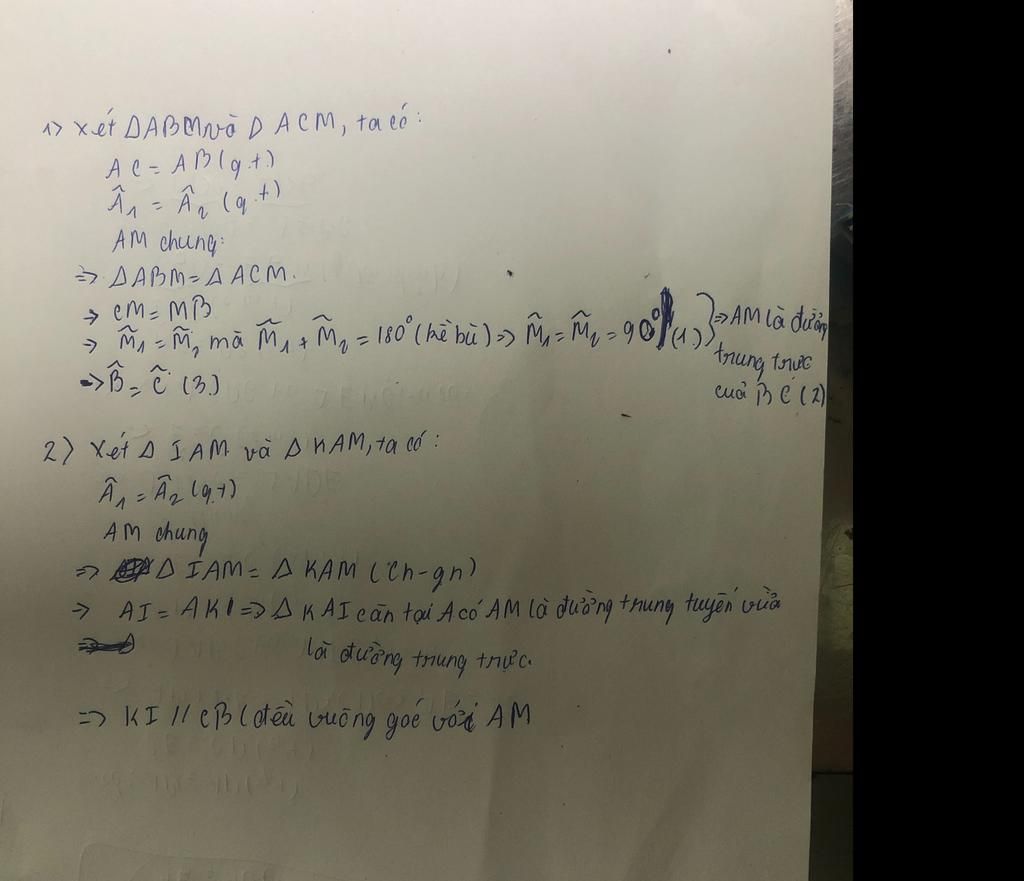 1) Xét ΔABM và Δ ACM, ta có:
AC = AB (g.t)
Â₁ = Â₂ (g.t)
AM chung:
=> ΔABM = Δ ACM.
→ CM = MB
→ M̂₁ = M̂₂ mà M̂₁ + M̂₂ = 180° (kề bù) => M̂₁ = M̂₂ = 90° (1) } => AM là đường
trung trực
của BC (2)
→ B̂ = Ĉ (3)
2) Xét Δ IAM và Δ KAM, ta có:
Â₁ = Â₂ (g.t)
AM chung
=> Δ IAM = Δ KAM (Ch-gn)
=> AI = AK => Δ KAI cân tại A có AM là đường trung tuyến vừa
là đường trung trực.
=> KI // CB (đều vuông goć với AM